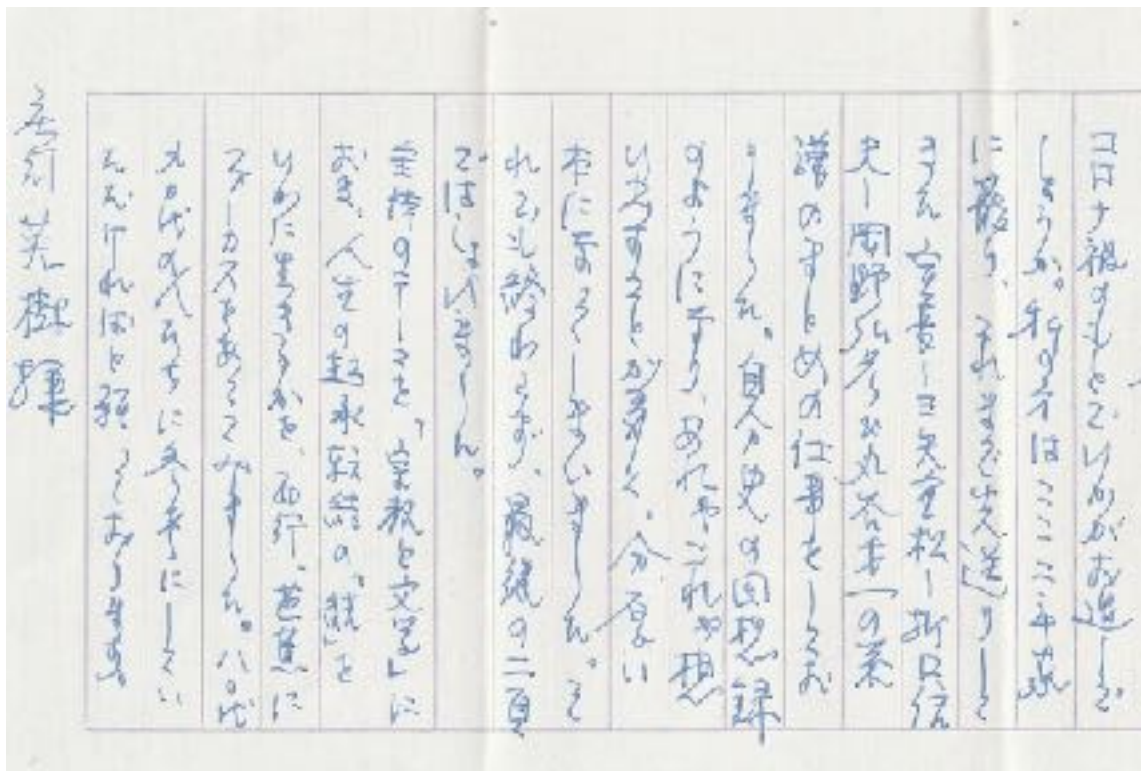 コロナ禍のもとでいかがお過しで
しょうか。私の方はここ二年
に り、それまで先送りして
きた 宣長ー三矢重松ー折口信
夫ー岡野弘彦 の系
譜のまとめの仕事をしてお
りました。自分史の回想録
のようになり、あれやこれや想
い出すことが多く、分厚い
本になってしまいました。そ
れでも終わらず、最後の二頁
ではしょいました。
全体のテーマを、「宗教と文学」に
おき、人生の起承転結の「結」を
いかに生きるかを、西行、芭蕉に
フォーカスをあててみました。八〇代
九〇代の人たちに参考にしてい
ただければと願っております。
様